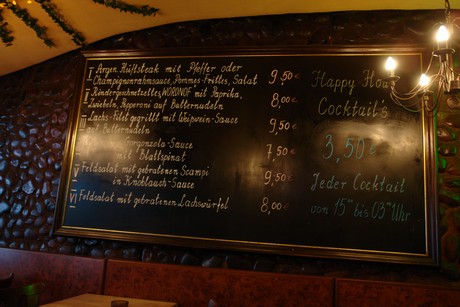 I Argen. Hüftsteak mit Pfeffer oder
Champignonrahmsauce, Pommes-Frites, Salat 9,50 €
II Rindergeschnetzeltes WORONOF mit Paprika,
Zwiebeln, Pepperoni auf Butternudeln 8,00 €
III Lachs-Filet gegrillt mit Weißwein-Sauce
auf Butternudeln 9,50 €
Gorgonzola-Sauce
mit Blattspinat 7,50 €
V Feldsalat mit gebratenen Scampi
in Knoblauch-Sauce 9,50 €
VI Feldsalat mit gebratenen Lachswürfel 8,00 €
Happy Hour
Cocktail's
3,50 €
Jeder Cocktail
von 15 bis 03 Uhr